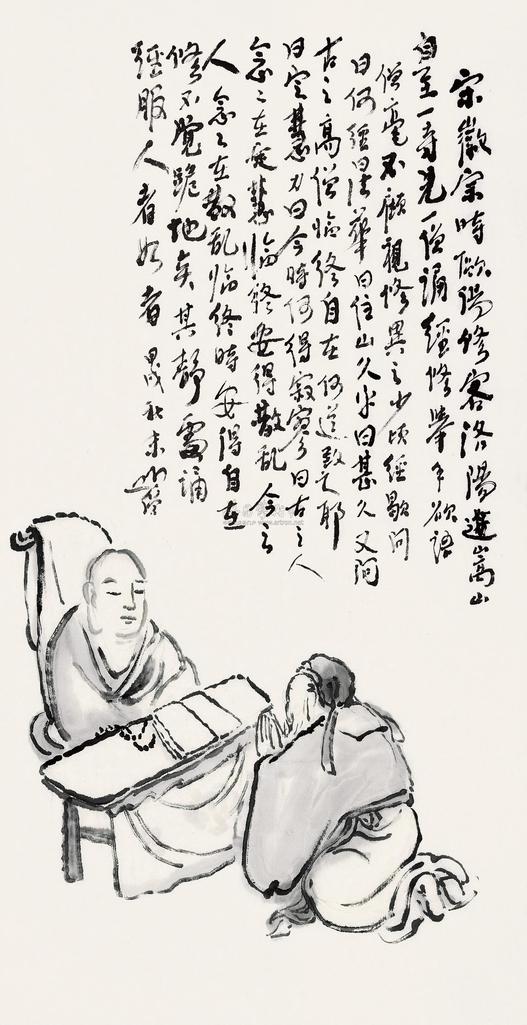 宋徽宗時歐陽修客洛陽遊嵩山
自至一寺見一僧誦經修舉手欲語
僧毫不顧視修異之少頃經歇問
曰何經曰法華曰住山久乎曰甚久又問
古之高僧臨終自在何道致之耶
曰定慧力曰今時何得寂寥曰古之人
念念在定慧臨終安得散乱今之
人念念在散乱臨終時安得自在
修不覺跪地矣其静處誦
經服人者如者
www.artron.net